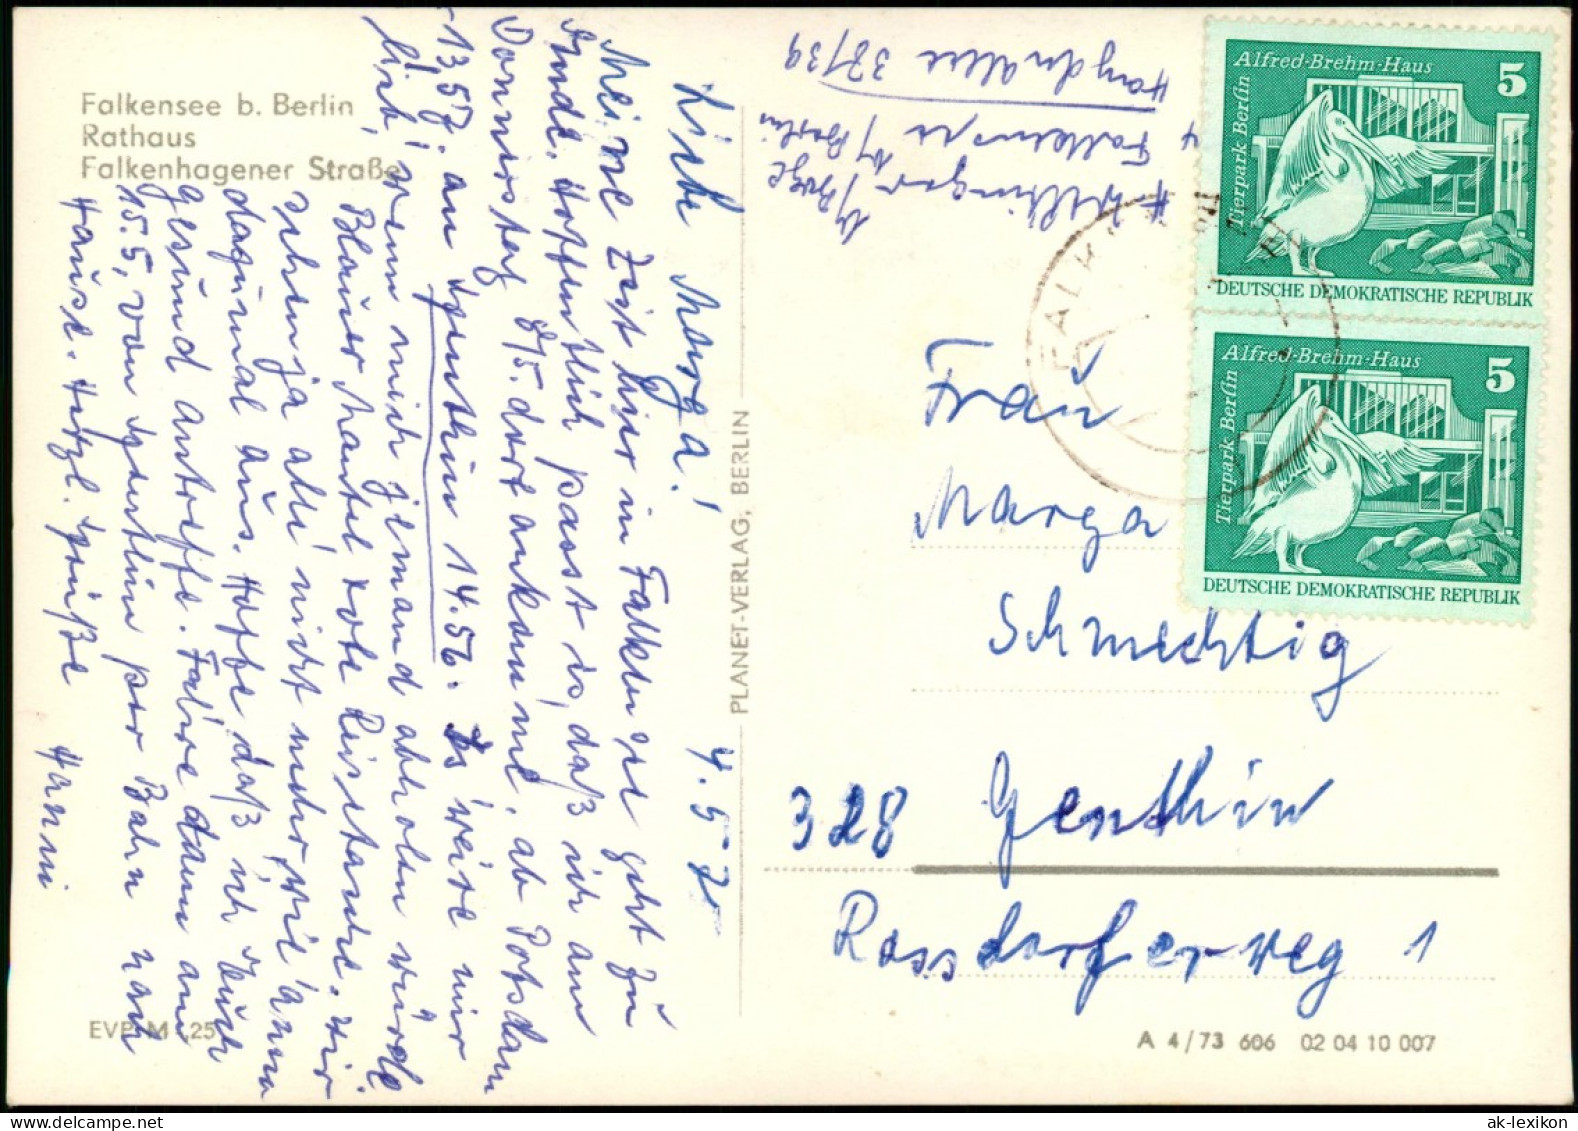 Falkensee b. Berlin
Rathaus
Falkenhagener Straße
Liebe Marga! 4.5.75
Meine Zeit hier in Falkensee geht zu
Ende. Hoffentlich passt es, daß ich am
Donnerstag 8/5. dort ankomme. ab Potsdam
13,57. an Genthin 14.56. Es wäre mir
lieb, wenn mich jemand abholen würde
Blauer Mantel rote Reisetasche. Wir
sehn ja alle nicht mehr wie
dazumal aus. Hoffe daß ich Euch
gesund antreffe. Fahre dann am
15.5. von Genthin per Bahn nach
Hause. Herzl. Grüße Hanni
EVP M -,25
PLANET-VERLAG, BERLIN
Falkensee
b/Berlin
38/39
FALK
Alfred-Brehm-Haus
5
Tierpark Berlin
DEUTSCHE DEMOKRATISCHE REPUBLIK
Alfred-Brehm-Haus
5
Tierpark Berlin
DEUTSCHE DEMOKRATISCHE REPUBLIK
Frau
Marga
Schmechtig
328 Genthin
Rossdorferweg 1
A 4/73 606 02 04 10 007
ak-lexikon